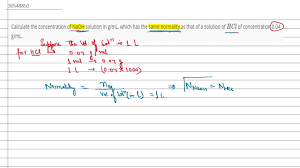 30548850
Calculate the concentration of NaOH solution in g/mL, which has the same normality as that of a solution of HCl of concentration 0.04
g/mL.
Suppose the Vol of Solⁿ is 1 L
for HCl → 0.04 g/ml
1 ml → 0.04 g
1 L → (0.04 × 1000)
Normality = neq / Vol of Solⁿ (in L) = 1L ⇒ NNaOH = NHCl